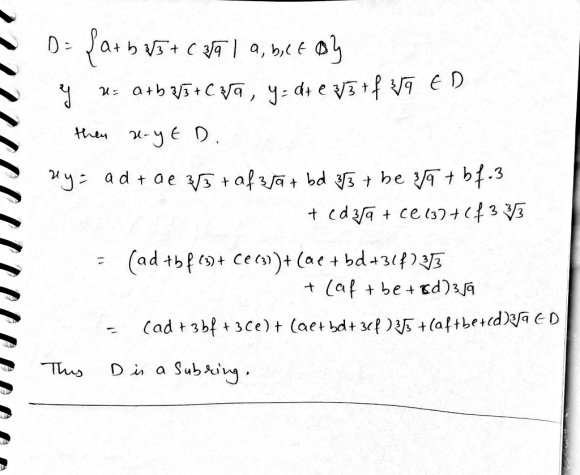 D = {a + b ∛3 + c ∛9 | a, b, c ∈ Q}
If x = a + b ∛3 + c ∛9, y = d + e ∛3 + f ∛9 ∈ D
then x - y ∈ D.
xy = ad + ae ∛3 + af ∛9 + bd ∛3 + be ∛9 + bf.3
+ cd ∛9 + ce(3) + cf 3 ∛3
= (ad + bf(3) + ce(3)) + (ae + bd + 3cf) ∛3
+ (af + be + cd) ∛9
= (ad + 3bf + 3ce) + (ae + bd + 3cf) ∛3 + (af + be + cd) ∛9 ∈ D
Thus D is a Subring.